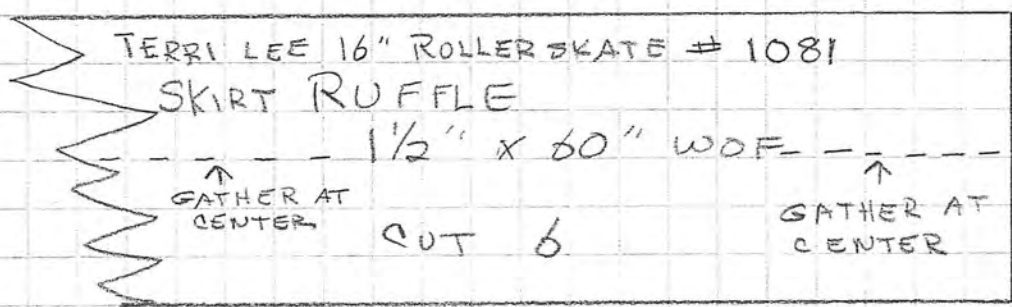 TERRI LEE 16" ROLLERSKATE # 1081
SKIRT RUFFLE
1½" x 60" WOF
GATHER AT
CENTER
GATHER AT
CENTER
CUT 6